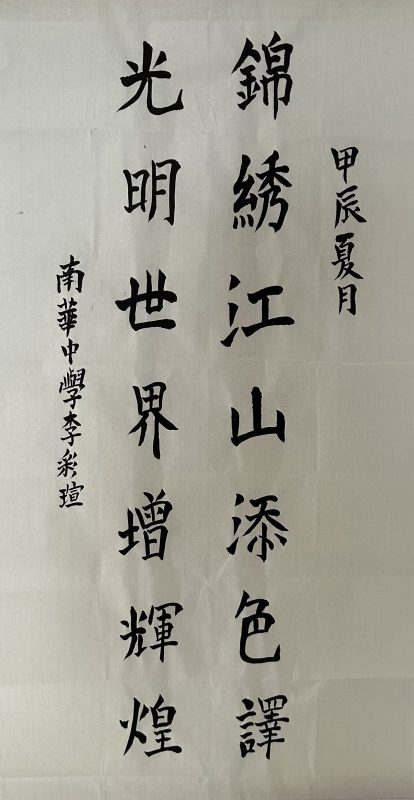 甲辰夏月
錦綉江山添色譯
光明世界增輝煌
南華中學李彩瑄